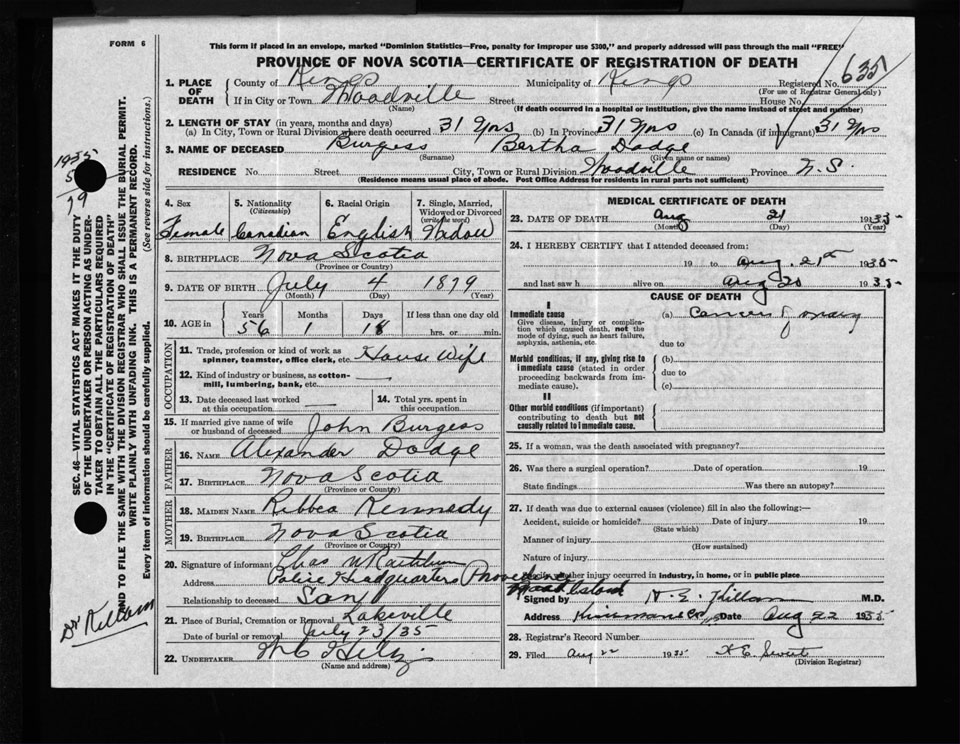 FORM 6
This form if placed in an envelope, marked "Dominion Statistics—Free, penalty for improper use $300," and properly addressed will pass through the mail "FREE"
PROVINCE OF NOVA SCOTIA—CERTIFICATE OF REGISTRATION OF DEATH
1. PLACE OF DEATH
County of Kings Municipality of Kings Registered No. 635
(For use of Registrar General only)
If in City or Town Woodville Street House No.
(Name) (If death occurred in a hospital or institution, give the name instead of street and number)
2. LENGTH OF STAY (in years, months and days)
(a) In City, Town or Rural Division where death occurred 31 Yrs (b) In Province 31 Yrs (c) In Canada (if immigrant) 31 Yrs
3. NAME OF DECEASED Burgess Bertha Dodge
(Surname) (Given name or names)
RESIDENCE No. Street City, Town or Rural Division Woodville Province N.S.
(Residence means usual place of abode. Post Office Address for residents in rural parts not sufficient)
4. Sex Female
5. Nationality (Citizenship) Canadian
6. Racial Origin English
7. Single, Married, Widowed or Divorced (write the word) Widow
8. BIRTHPLACE Nova Scotia
(Province or Country)
9. DATE OF BIRTH July 4 1879
(Month) (Day) (Year)
10. AGE in Years Months Days If less than one day old
56 1 18 hrs. or min.
OCCUPATION
11. Trade, profession or kind of work as spinner, teamster, office clerk, etc. House Wife
12. Kind of industry or business, as cotton-mill, lumbering, bank, etc. —
13. Date deceased last worked at this occupation —
14. Total yrs. spent in this occupation
15. If married give name of wife or husband of deceased John Burgess
FATHER
16. NAME Alexander Dodge
17. BIRTHPLACE Nova Scotia
(Province or Country)
MOTHER
18. MAIDEN NAME Ribbea Kennedy
19. BIRTHPLACE Nova Scotia
(Province or Country)
20. Signature of informant Chas W Rathbun
Address Police Headquarters
Relationship to deceased Son
21. Place of Burial, Cremation or Removal Lakeville
Date of burial or removal July 23/35
22. UNDERTAKER
(Name and address)
MEDICAL CERTIFICATE OF DEATH
23. DATE OF DEATH Aug 21 1935
(Month) (Day) (Year)
24. I HEREBY CERTIFY that I attended deceased from:
19 to Aug. 21st 1935
and last saw h alive on Aug 20 1935
CAUSE OF DEATH
I
Immediate cause
Give disease, injury or complication which caused death, not the mode of dying, such as heart failure, asphyxia, asthenia, etc.
(a) Cancer of ovary
due to
Morbid conditions, if any, giving rise to immediate cause (stated in order proceeding backwards from immediate cause).
(b)
due to
(c)
II
Other morbid conditions (if important) contributing to death but not causally related to immediate cause.
25. If a woman, was the death associated with pregnancy?
26. Was there a surgical operation? Date of operation 19
State findings Was there an autopsy?
27. If death was due to external causes (violence) fill in also the following:—
Accident, suicide or homicide? Date of injury 19
(State which)
Manner of injury
(How sustained)
Nature of injury
whether injury occurred in industry, in home, or in public place
Signed by M.D.
Address Date Aug 22 1935
28. Registrar's Record Number
29. Filed Aug 22 1935
(Division Registrar)
SEC. 46—VITAL STATISTICS ACT MAKES IT THE DUTY
OF THE UNDERTAKER OR PERSON ACTING AS UNDER-
TAKER TO OBTAIN ALL THE PARTICULARS REQUIRED
IN THE "CERTIFICATE OF REGISTRATION OF DEATH"
AND TO FILE THE SAME WITH THE DIVISION REGISTRAR WHO SHALL ISSUE THE BURIAL PERMIT.
WRITE PLAINLY WITH UNFADING INK. THIS IS A PERMANENT RECORD.
Every item of information should be carefully supplied. (See reverse side for instructions.)
1935
5
19
Dr Killam